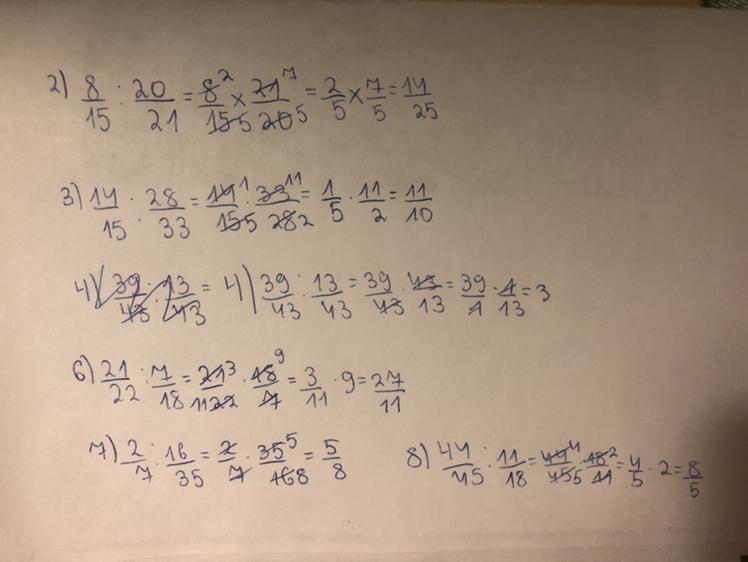 2) 8/15 : 20/21 = 8²/155 × 21⁷/205 = 2/5 × 7/5 = 14/25
3) 14/15 : 28/33 = 14¹/155 · 33¹¹/282 = 1/5 · 11/2 = 11/10
4) 39/43 : 13/43 = 4) 39/43 : 13/43 = 39/43 · 43/13 = 39/1 · 1/13 = 3
6) 21/22 : 7/18 = 21³/1122 · 18⁹/7 = 3/11 · 9 = 27/11
7) 2/7 : 16/35 = 2/7 · 35⁵/168 = 5/8 8) 44/45 : 11/18 = 44⁴/455 · 18²/11 = 4/5 · 2 = 8/5